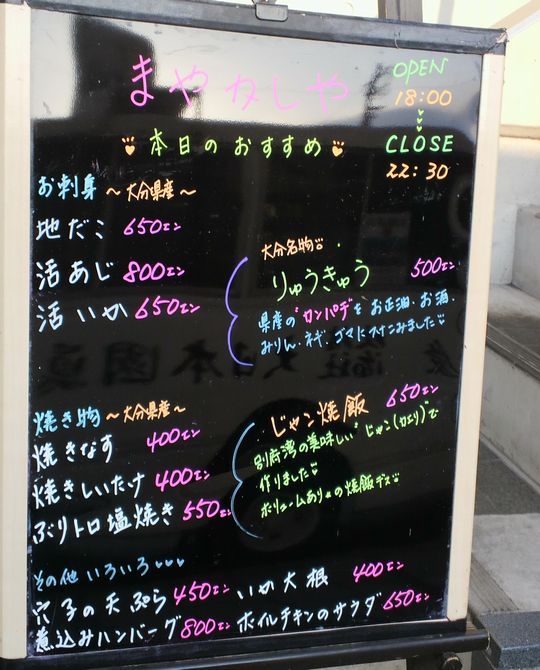 まやかしや
OPEN
18:00
CLOSE
22:30
本日のおすすめ
お刺身 ～大分県産～
地だこ 650エン
活あじ 800エン
活いか 650エン
大分名物
りゅうきゅう 500エン
県産の"カンパチ"をお正油、お酒、
みりん、ネギ、ゴマにつけこみました
焼き物 ～大分県産～
焼きなす 400エン
焼きしいたけ 400エン
ぶりトロ塩焼き 550エン
じゃン焼飯 650エン
別府湾の美味しい"じゃン(カエリ)"で
作りました
ボリュームありの焼飯デス
その他いろいろ
穴子の天ぷら 450エン
いか大根 400エン
煮込みハンバーグ 800エン
ボイルチキンのサラダ 650エン
大日本図